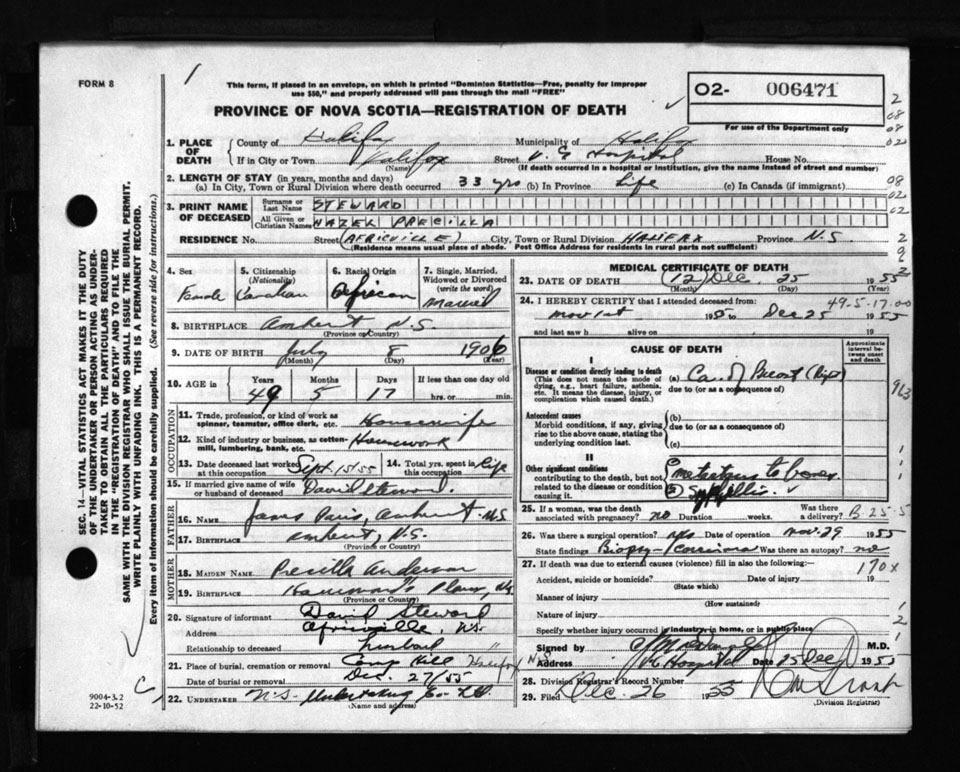 FORM 8
1
This form, if placed in an envelope, on which is printed "Dominion Statistics—Free, penalty for improper
use $50," and properly addressed will pass through the mail "FREE"
PROVINCE OF NOVA SCOTIA—REGISTRATION OF DEATH
02- 006471
For use of the Department only
2
08
08
02
08
02
02
2
9
2
1. PLACE OF DEATH County of Halifax Municipality of Halifax
If in City or Town Halifax Street V.G. Hospital House No.
(Name) (If death occurred in a hospital or institution, give the name instead of street and number)
2. LENGTH OF STAY (in years, months and days)
(a) In City, Town or Rural Division where death occurred 33 yrs (b) In Province Life (c) In Canada (if immigrant)
3. PRINT NAME OF DECEASED Surname or Last Name STEWARD
All Given or Christian Names HAZEL PRECILLA
RESIDENCE No. Street (AFRICVILLE) City, Town or Rural Division HALIFAX Province N.S.
(Residence means usual place of abode. Post Office Address for residents in rural parts not sufficient)
4. Sex Female
5. Citizenship (Nationality) Canadian
6. Racial Origin African
7. Single, Married, Widowed or Divorced (write the word) Married
8. BIRTHPLACE Amherst N.S.
(Province or Country)
9. DATE OF BIRTH July 8 1906
(Month) (Day) (Year)
10. AGE in Years Months Days If less than one day old
49 5 17 hrs. or min.
OCCUPATION
11. Trade, profession, or kind of work as spinner, teamster, office clerk, etc. Housewife
12. Kind of industry or business, as cotton-mill, lumbering, bank, etc. Housework
13. Date deceased last worked at this occupation Sept 15/55 14. Total yrs. spent in this occupation Life
15. If married give name of wife or husband of deceased David Steward.
FATHER
16. NAME James Paris, Amherst N.S.
17. BIRTHPLACE Amherst, N.S.
(Province or Country)
MOTHER
18. MAIDEN NAME Precilla Anderson
19. BIRTHPLACE Plains, N.S.
(Province or Country)
20. Signature of informant David Steward
Address Africville, N.S.
Relationship to deceased husband
21. Place of burial, cremation or removal Camp Hill Halifax N.S.
Date of burial or removal Dec. 27/55
22. UNDERTAKER N.S. Undertaking Co. Ltd
(Name and address)
9004-3.2
22-10-52
MEDICAL CERTIFICATE OF DEATH
23. DATE OF DEATH (12) Dec. 25 1955
(Month) (Day)
49-5-17-00
24. I HEREBY CERTIFY that I attended deceased from:
Nov 1st 195 to Dec 25 1955
and last saw h alive on 19
CAUSE OF DEATH
Approximate interval between onset and death
I
Disease or condition directly leading to death
(This does not mean the mode of dying, e.g., heart failure, asthenia, etc. It means the disease, injury, or complication which caused death.)
(a) Ca. of Breast (Right)
due to (or as a consequence of)
Antecedent causes
Morbid conditions, if any, giving rise to the above cause, stating the underlying condition last.
(b)
due to (or as a consequence of)
(c)
II
Other significant conditions
contributing to the death, but not related to the disease or condition causing it.
to bones
Syphillis.
25. If a woman, was the death associated with pregnancy? no Duration weeks. Was there a delivery? B-25-5
26. Was there a surgical operation? yes Date of operation Nov. 29 1955
State findings Biopsy - Was there an autopsy? no
27. If death was due to external causes (violence) fill in also the following:— 170X
Accident, suicide or homicide? Date of injury 19
(State which)
Manner of injury
(How sustained)
Nature of injury
Specify whether injury occurred in industry, in home, or in public place
Signed by M.D.
Address V.G. Hospital Date 25 Dec 1955
28. Division Registrar's Record Number
29. Filed Dec. 26 1955
(Division Registrar)
SEC. 14—VITAL STATISTICS ACT MAKES IT THE DUTY
OF THE UNDERTAKER OR PERSON ACTING AS UNDER-
TAKER TO OBTAIN ALL THE PARTICULARS REQUIRED
IN THE "REGISTRATION OF DEATH" AND TO FILE THE
SAME WITH THE DIVISION REGISTRAR WHO SHALL ISSUE THE BURIAL PERMIT.
WRITE PLAINLY WITH UNFADING INK—THIS IS A PERMANENT RECORD.
Every item of information should be carefully supplied. (See reverse side for instructions.)